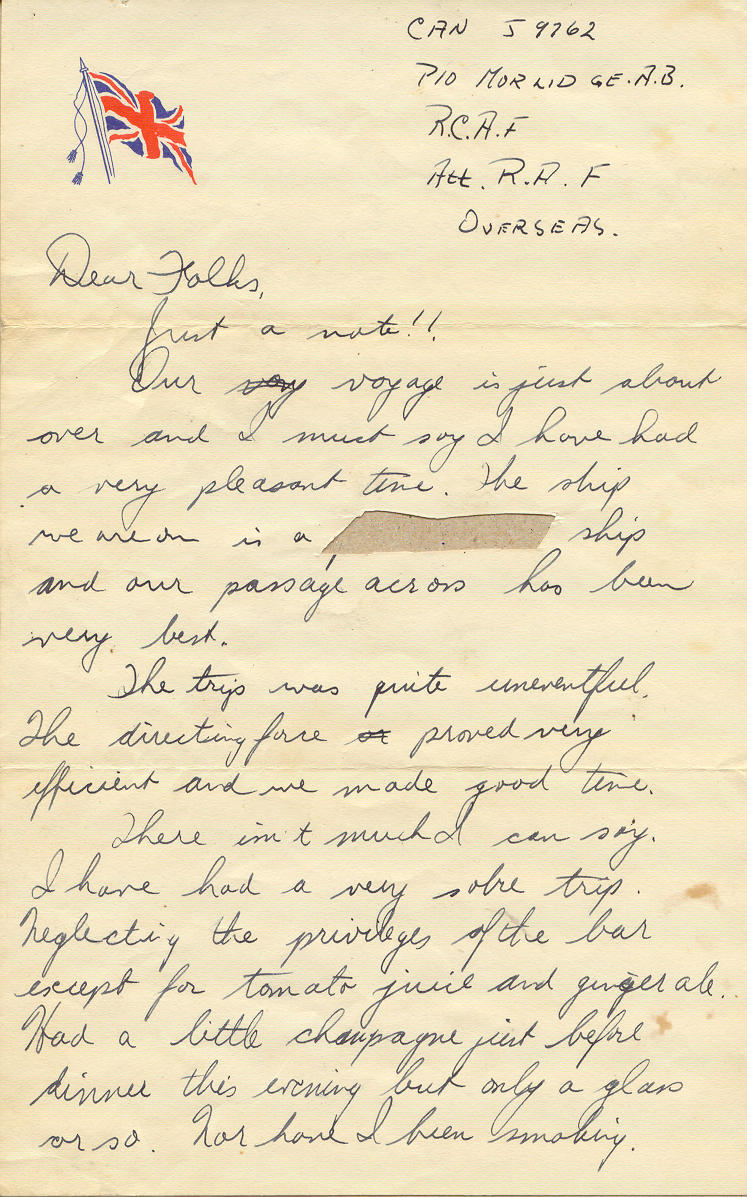 CAN J 9762
P/O MORLIDGE. A.B.
R.C.A.F
Att. R.A.F
OVERSEAS.
Dear Folks,
Just a note!!
Our voy voyage is just about
over and I must say I have had
a very pleasant time. The ship
we are on is a ship
and our passage across has been
very best.
The trip was quite uneventful.
The directing force or proved very
efficient and we made good time.
There isn't much I can say.
I have had a very sobre trip.
Neglecting the privileges of the bar
except for tomato juice and ginger ale.
Had a little champagne just before
dinner this evening but only a glass
or so. Nor have I been smoking.